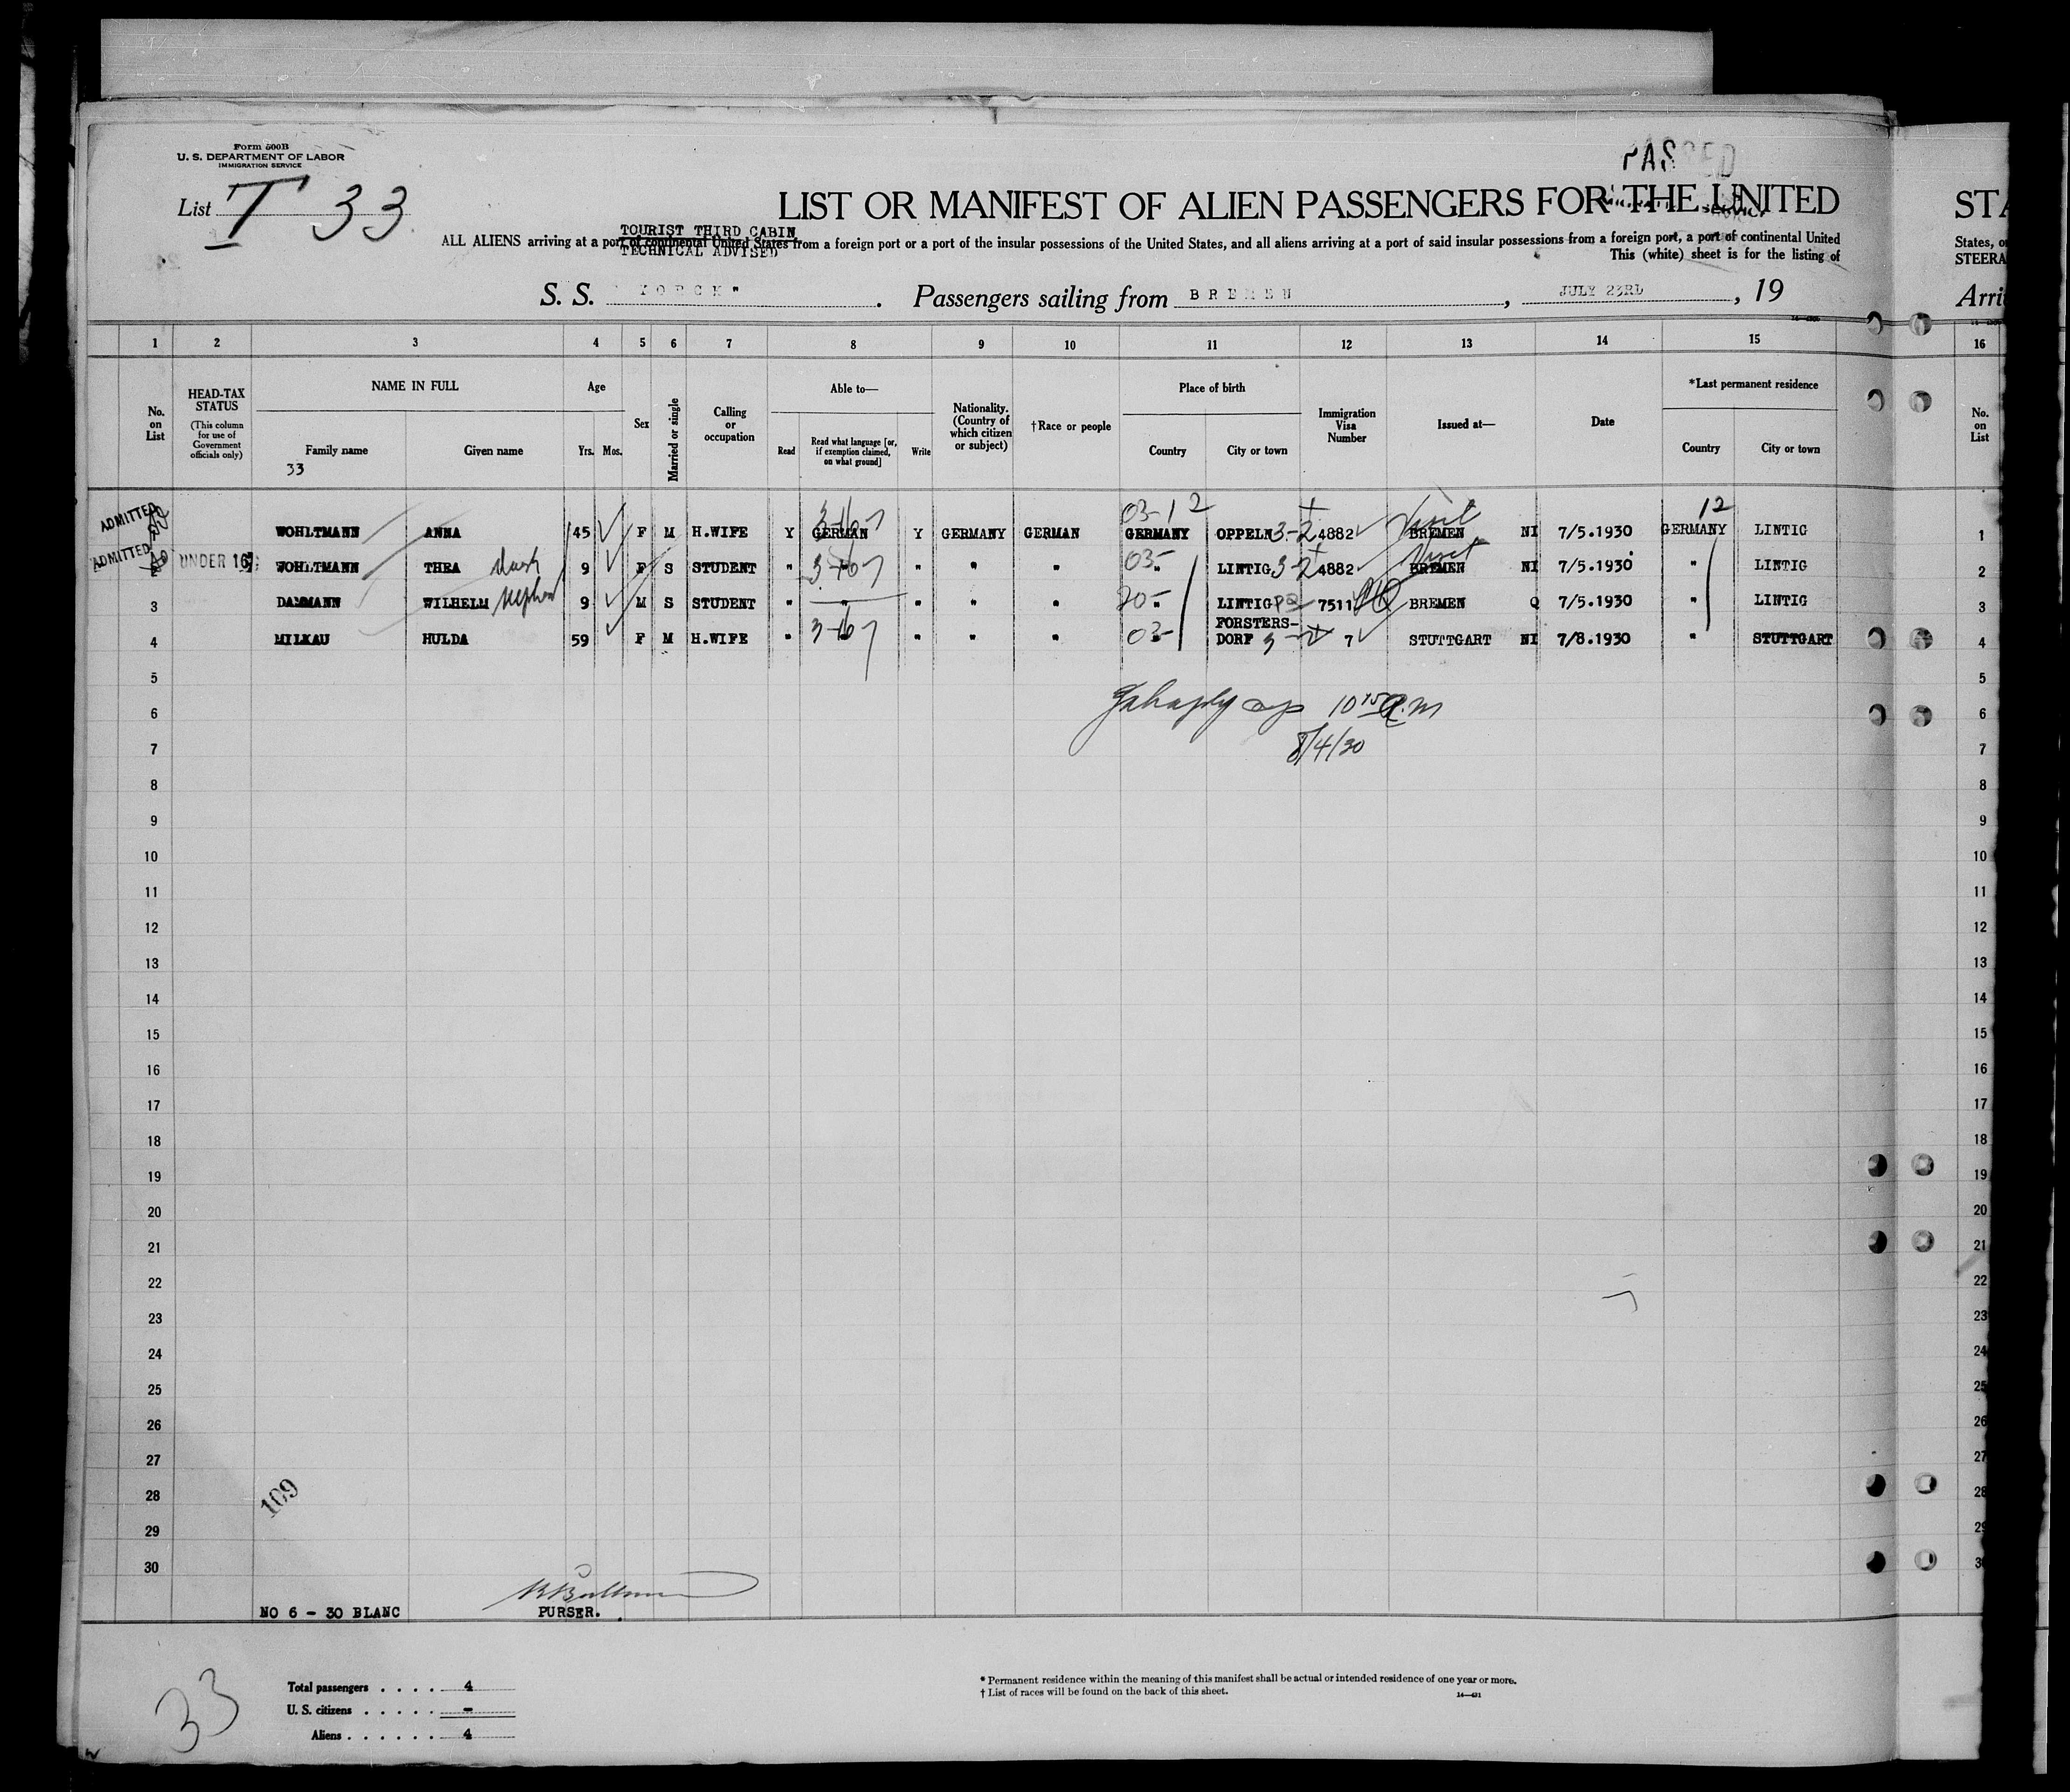 Form 500B
U. S. DEPARTMENT OF LABOR
IMMIGRATION SERVICE
List T 33
PASSED
LIST OR MANIFEST OF ALIEN PASSENGERS FOR THE UNITED
STA
TOURIST THIRD CABIN
ALL ALIENS arriving at a port of continental United States from a foreign port or a port of the insular possessions of the United States, and all aliens arriving at a port of said insular possessions from a foreign port, a port of continental United
States, o
TECHNICAL ADVISED
This (white) sheet is for the listing of
STEERA
S. S. YORCK" . Passengers sailing from BREMEN , JULY 23RD , 19
Arri
1 2 3 4 5 6 7 8 9 10 11 12 13 14 15 16
No. on List
HEAD-TAX STATUS
(This column for use of Government officials only)
NAME IN FULL
Family name
33
Given name
Age
Yrs. Mos.
Sex
Married or single
Calling or occupation
Able to—
Read
Read what language [or, if exemption claimed, on what ground]
Write
Nationality. (Country of which citizen or subject)
†Race or people
Place of birth
Country
City or town
Immigration Visa Number
Issued at—
Date
*Last permanent residence
Country
City or town
No. on List
03-12 12
ADMITTED WOHLTMANN ANNA 45 F M H.WIFE Y GERMAN Y GERMANY GERMAN GERMANY OPPELN 3-2 4882 Visit BREMEN NI 7/5.1930 GERMANY LINTIG 1
ADMITTED 2 UNDER 16 WOHLTMANN THEA 9 F S STUDENT " " " " " 03- " LINTIG 3-2 4882 Visit BREMEN NI 7/5.1930 " LINTIG 2
3 DAMMANN WILHELM nephew 9 M S STUDENT " " " " " 20- " LINTIG 7511 BREMEN Q 7/5.1930 " LINTIG 3
4 MILKAU HULDA 59 F M H.WIFE " " " " 03- " FORSTERS-
DORF 3 7 STUTTGART NI 7/8.1930 " STUTTGART 4
5 5
6 10 15 a.m 6
7 8/4/30 7
8 8
9 9
10 10
11 11
12 12
13 13
14 14
15 15
16 16
17 17
18 18
19 19
20 20
21 21
22 22
23 23
24 24
25 25
26 26
27 27
28 109 28
29 29
30 3
NO 6 - 30 BLANC
PURSER.
33
Total passengers . . . . 4
U. S. citizens . . . . . -
Aliens . . . . . . 4
* Permanent residence within the meaning of this manifest shall be actual or intended residence of one year or more.
† List of races will be found on the back of this sheet.